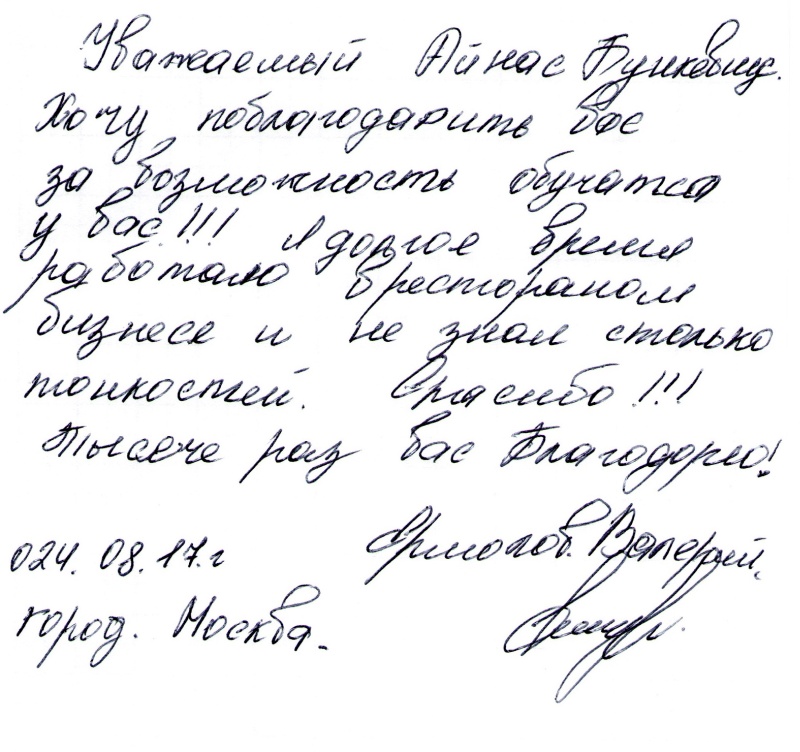 Уважаемый Айнас Бункевич.
Хочу поблагодарить вас
за возможность обучатся
у вас!!! Я долгое время
работаю в рестораном
бизнесе и не знал столько
тонкостей. Спасибо!!!
Тысече раз вас Благодорю!
Ермолов. Валерий.
024. 08. 17. г
город. Москва.